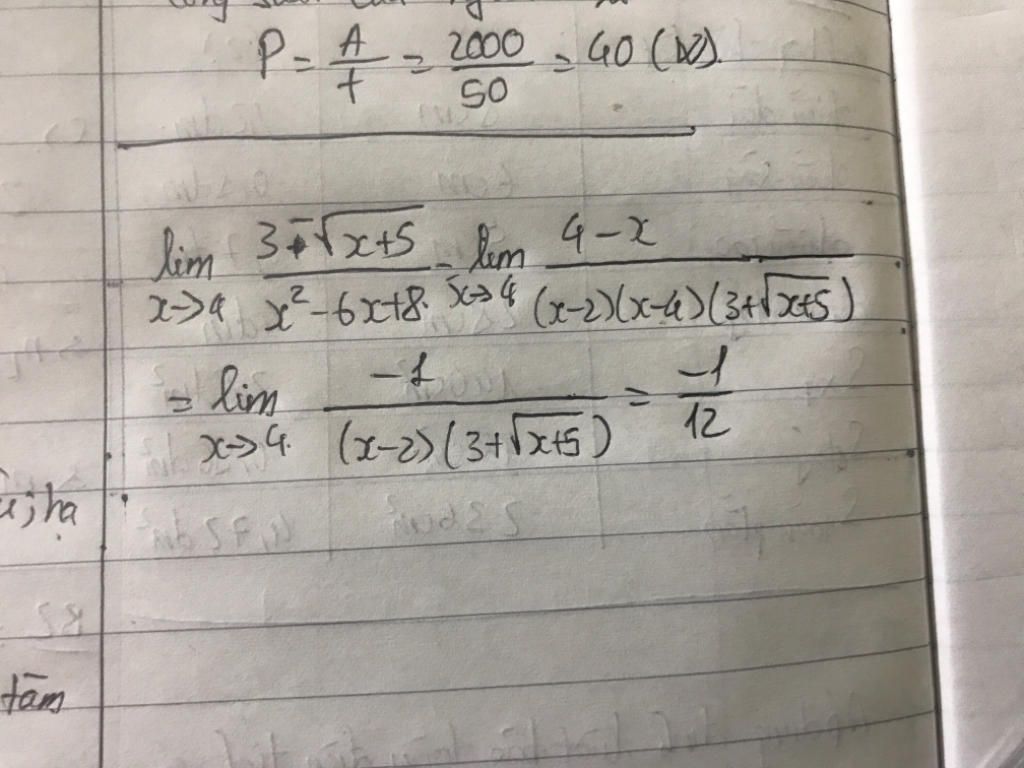 P = A/t = 2000/50 = 40 (W).
lim x→4 (3 - √(x+5))/(x² - 6x + 8) = lim x→4 (4 - x)/((x-2)(x-4)(3+√(x+5)))
= lim x→4 -1/((x-2)(3+√(x+5))) = -1/12
; hạ
tâm